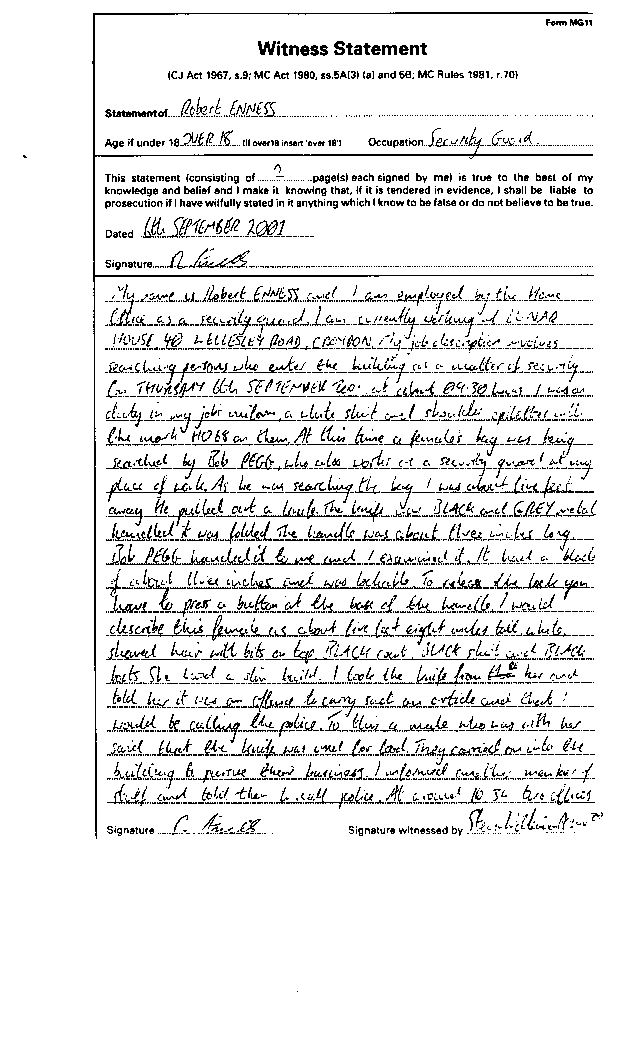 Form MG11
Witness Statement
(CJ Act 1967, s.9; MC Act 1980, ss.5A(3) (a) and 5B; MC Rules 1981, r.70)
Statement of Robert ENNESS
Age if under 18 OVER 18 (if over 18 insert 'over 18') Occupation Security Guard.
This statement (consisting of 2 page(s) each signed by me) is true to the best of my
knowledge and belief and I make it knowing that, if it is tendered in evidence, I shall be liable to
prosecution if I have wilfully stated in it anything which I know to be false or do not believe to be true.
Dated 6th SEPTEMBER 2001
Signature
My name is Robert ENNESS and I am employed by the Home
Office as a security guard. I am currently working at LUNAR
HOUSE 40 WELLESLEY ROAD, CROYDON. My job description involves
searching persons who enter the building as a matter of security
On THURSDAY 6th SEPTEMBER 2001 at about 09.30 hours I was on
duty in my job uniform, a white shirt and shoulder epilettes with
the mark HO68 on them. At this time a females bag was being
searched by Bob PEGG, who also works as a security guard at my
place of work. As he was searching the bag I was about five feet
away. He pulled out a knife. The knife was BLACK and GREY metal
handled it was folded. The handle was about three inches long
Bob PEGG handed it to me and I examined it. It had a blade
of about three inches and was lockable. To release the lock you
have to press a button at the base of the handle. I would
describe this female as about five foot eight inches tall, white,
shaved hair with bits on top, BLACK coat, BLACK skirt and BLACK
boots. She had a slim build. I took the knife from her and
told her it was an offence to carry such an article and that I
would be calling the police. To this a male who was with her
said that the knife was used for food. They carried on into the
building to pursue their business. I informed another member of
staff and told them to call police. At around 10.34 two officers
Signature
Signature witnessed by